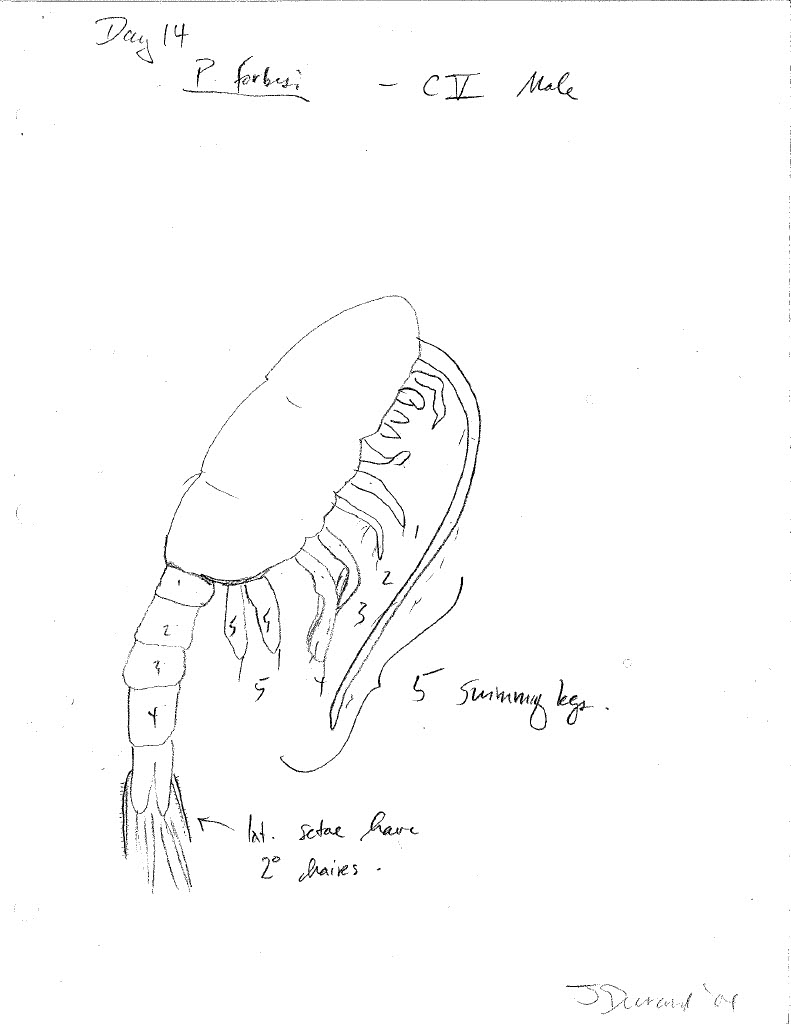 Day 14
P. forbesi - CV Male
1
2
3
4
5
5
5
1
2
3
4
5 swimming legs.
lat. setae have
2° haires.
J Durand '04